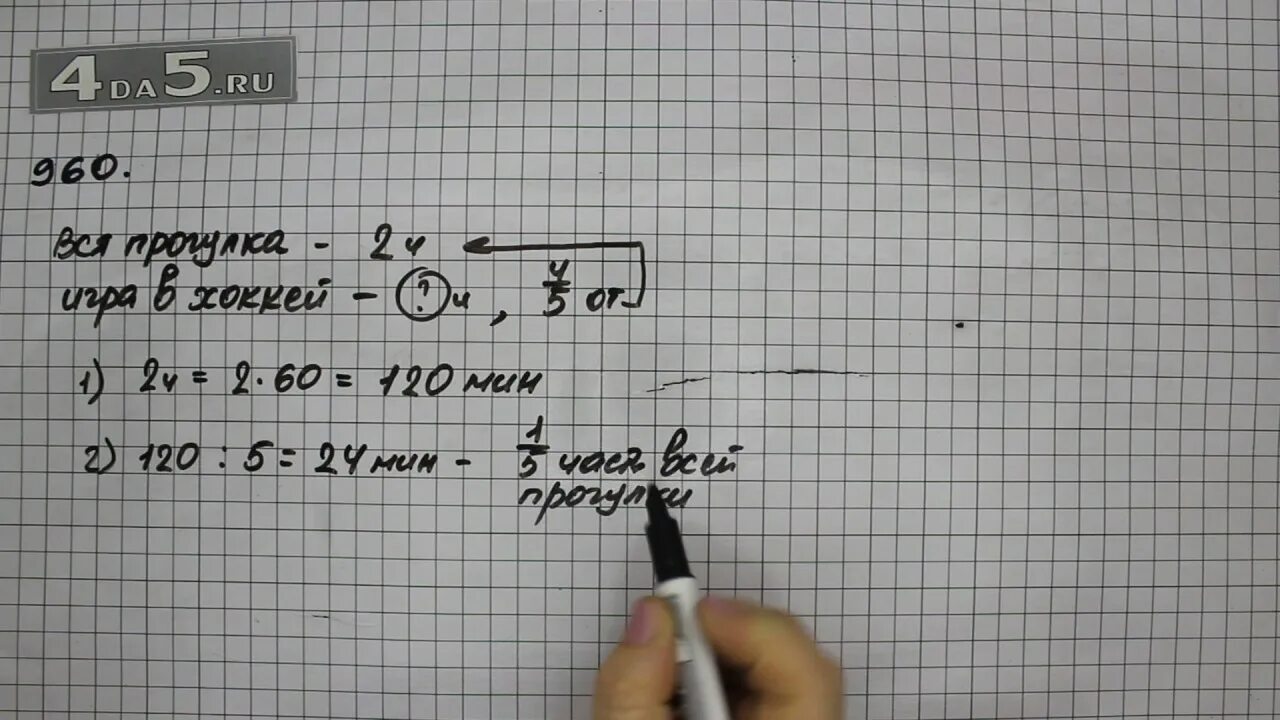 4DA5.RU
960.
вся прогулка - 2 ч
игра в хоккей - ? ч , 4/5 от
1) 2ч = 2·60 = 120 мин
2) 120 : 5 = 24 мин - 1/5 часть всей
прогулки